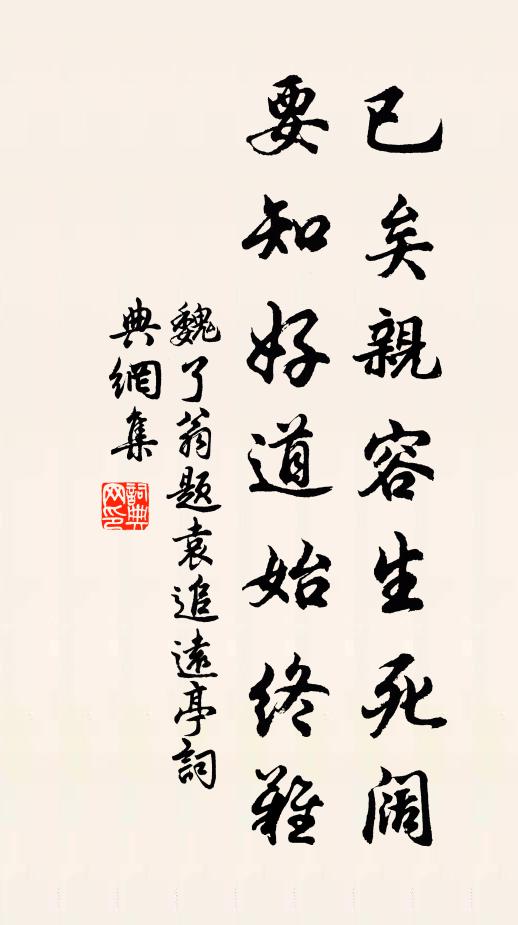 已矣親容生死阔
要知好道始终難
魏了翁題袁追遠亭詞
典網集
詞典
网印